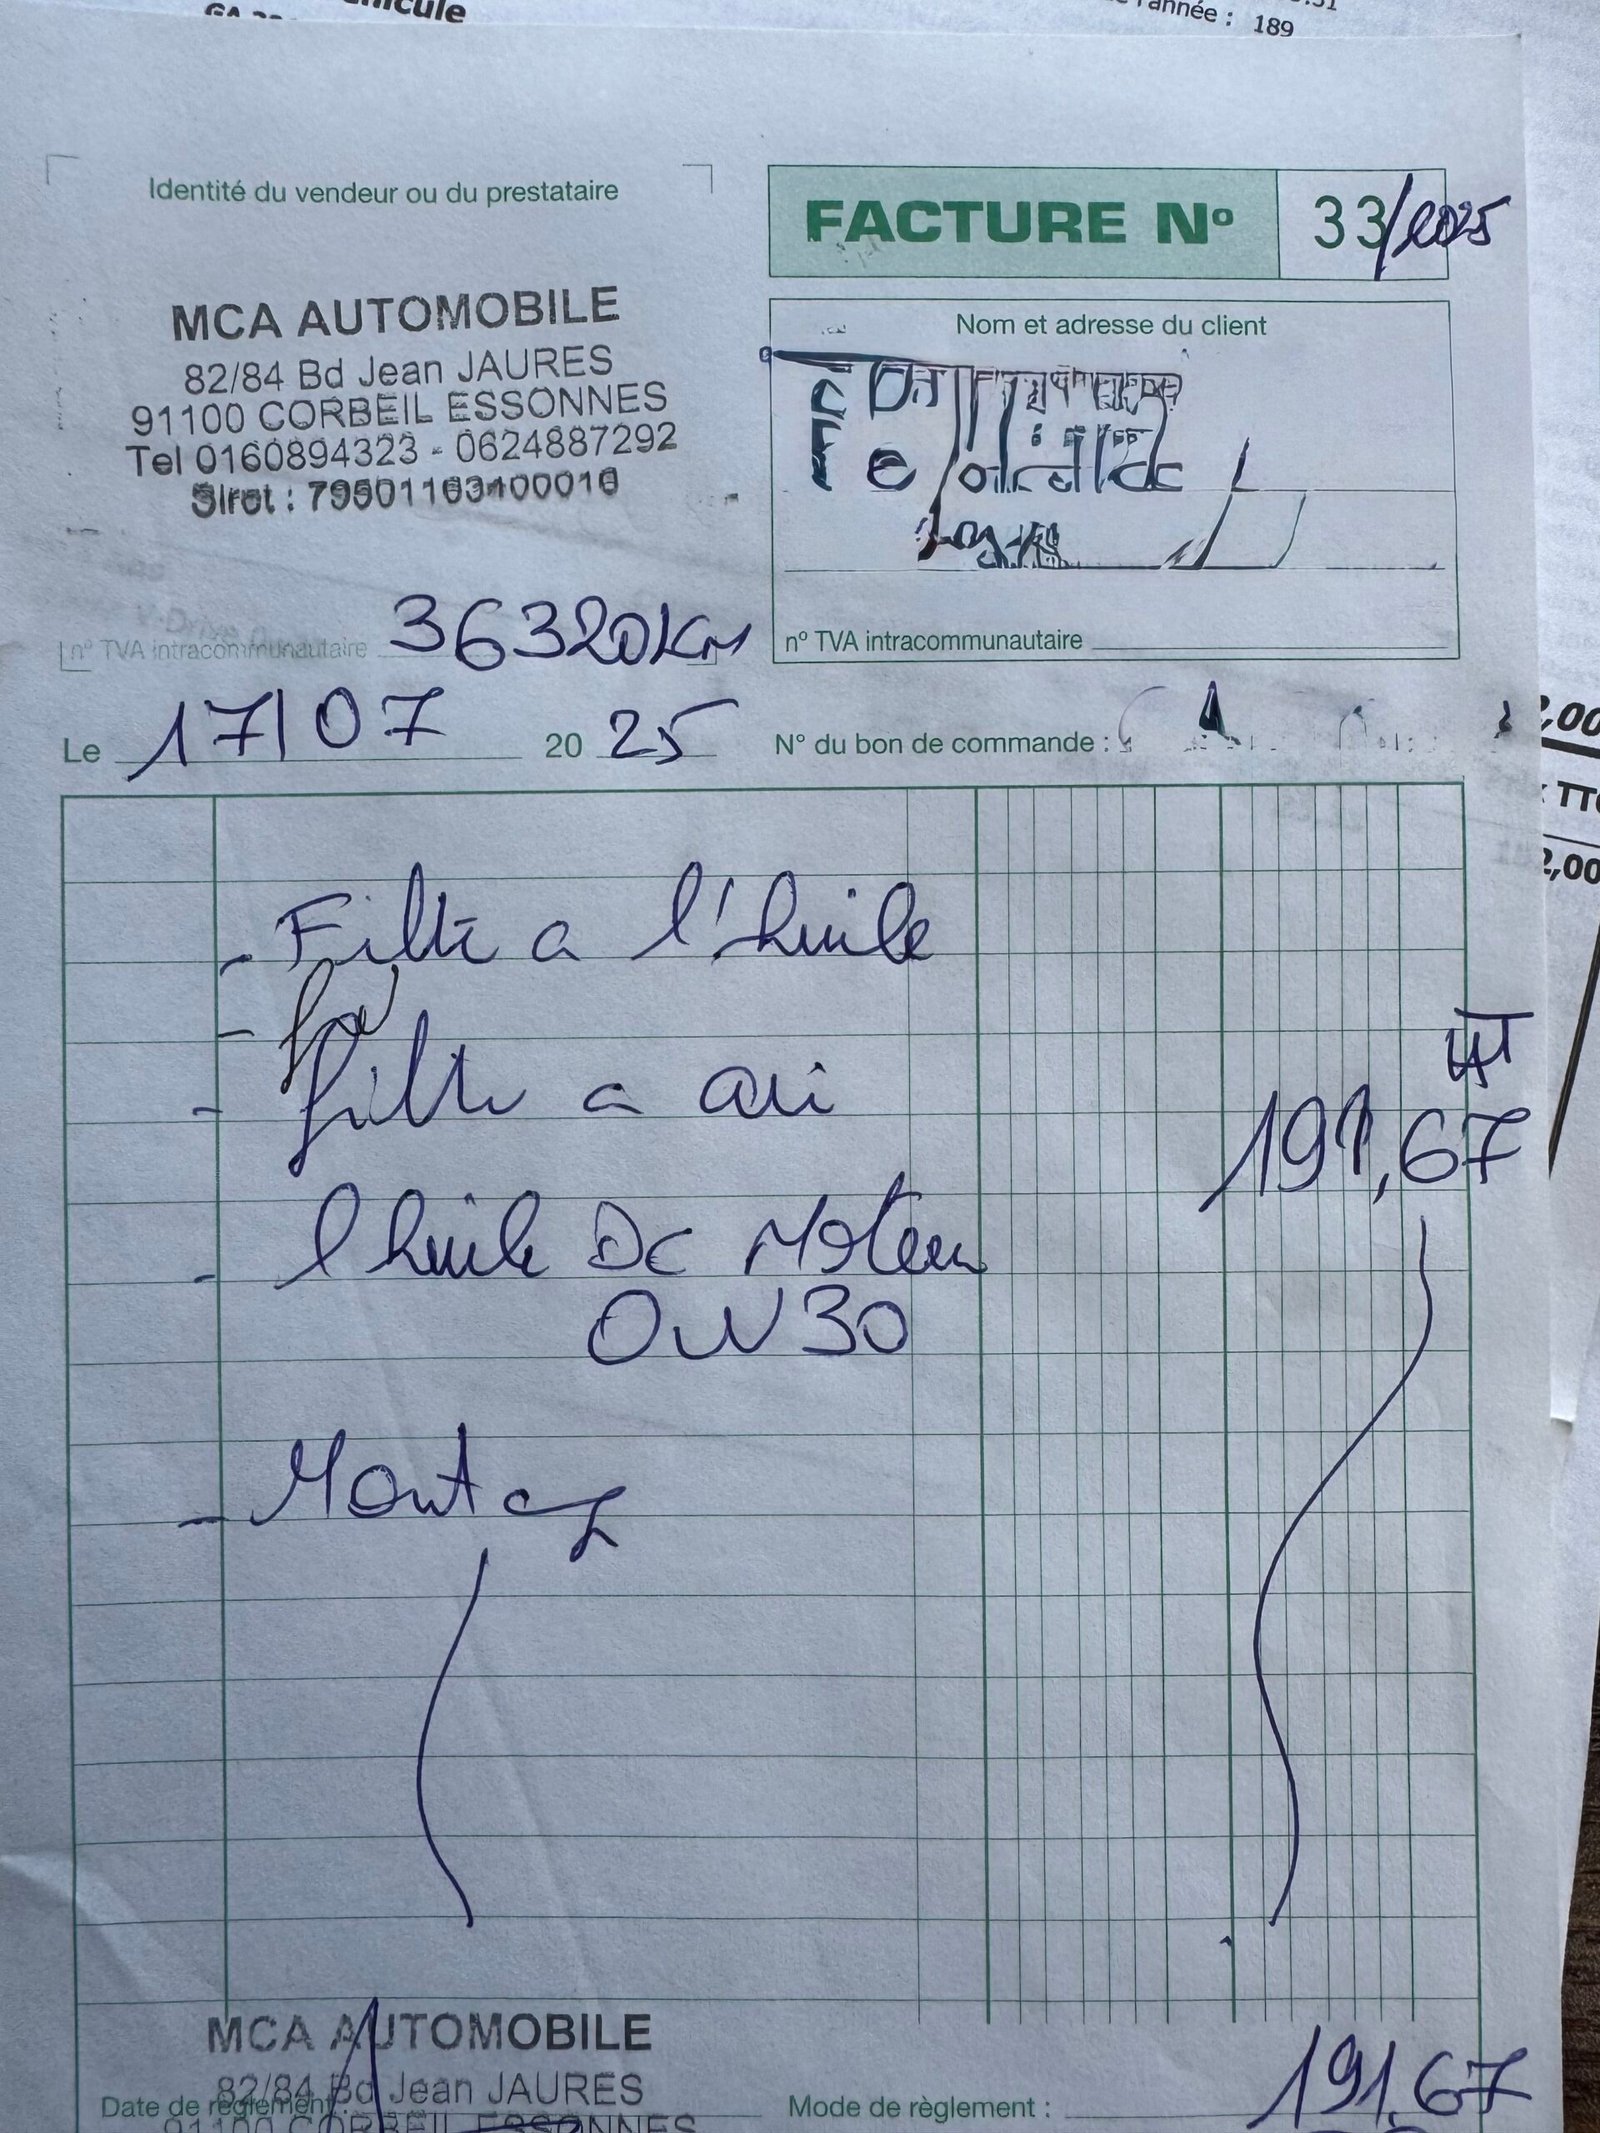 icule
l'année : 189
Identité du vendeur ou du prestataire
FACTURE Nº 33/2025
MCA AUTOMOBILE
82/84 Bd Jean JAURES
91100 CORBEIL ESSONNES
Tel 0160894323 - 0624887292
Siret :
Nom et adresse du client
n° TVA intracommunautaire 36320KM
n° TVA intracommunautaire
Le 17/07 2025
N° du bon de commande :
2,00
TT
2,00
- Filtre a l'huile
- filtre a air
HT
191,67
- l'huile De Moteur
0W30
- Montag
MCA AUTOMOBILE
82/84 Bd Jean JAURES
Date de règlement :
Mode de règlement :
191,67
91100 CORBEIL ESSONNES